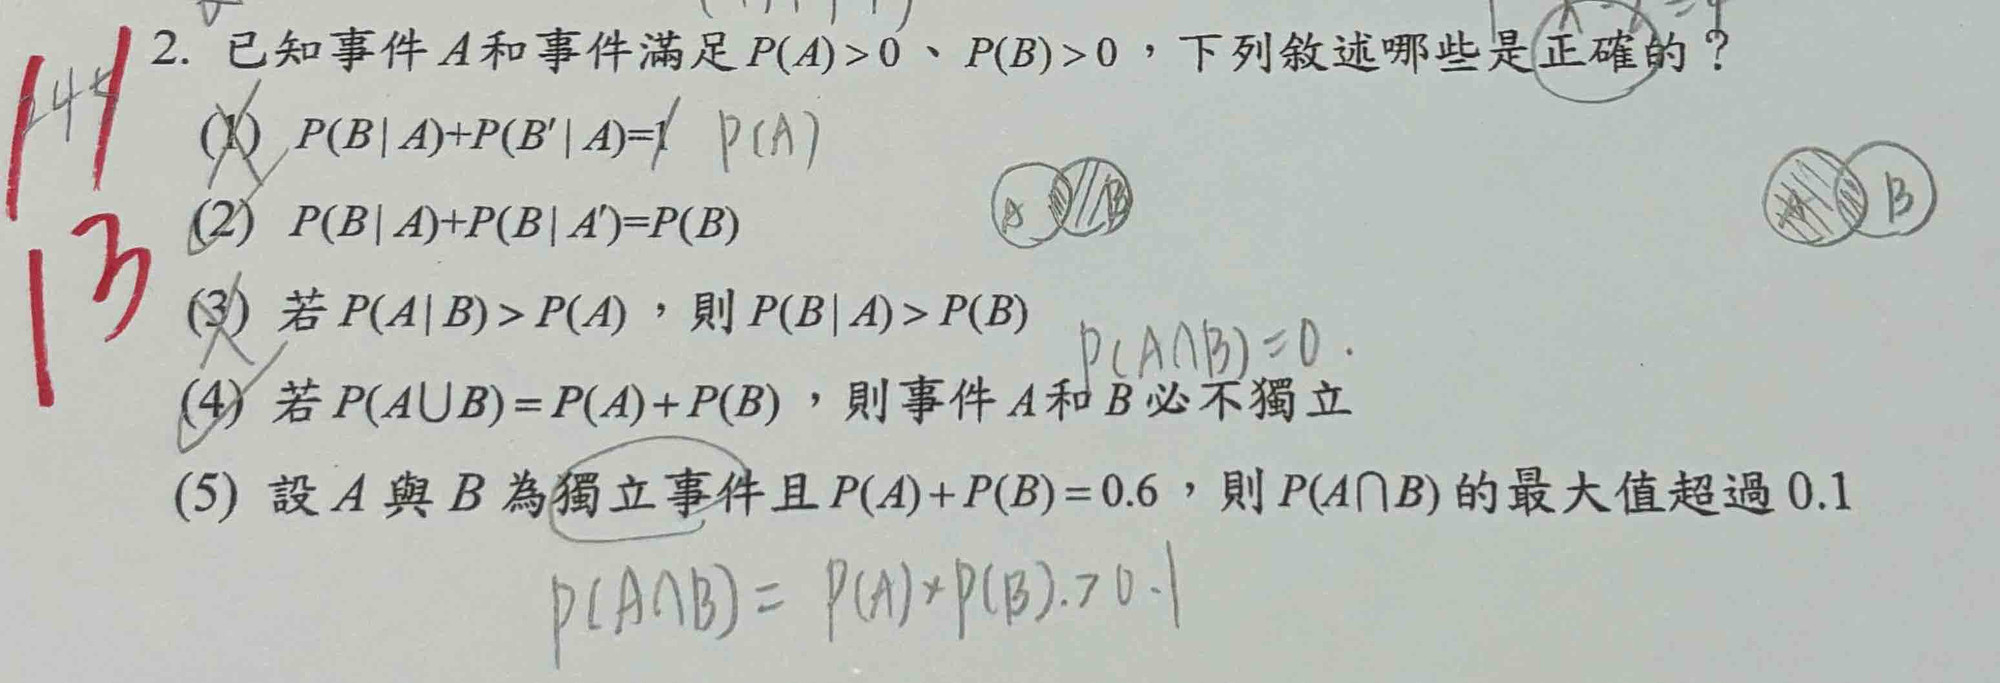 2. 已知事件 A 和事件滿足 P(A)>0、P(B)>0,下列敘述哪些是正確的?
(1) P(B|A)+P(B'|A)=1 P(A)
(2) P(B|A)+P(B|A')=P(B)
A B
A B
(3) 若 P(A|B)>P(A),則 P(B|A)>P(B)
P(A∩B)=0.
(4) 若 P(A∪B)=P(A)+P(B),則事件 A 和 B 必不獨立
(5) 設 A 與 B 為獨立事件且 P(A)+P(B)=0.6,則 P(A∩B) 的最大值超過 0.1
P(A∩B)= P(A)×P(B).>0.1
13